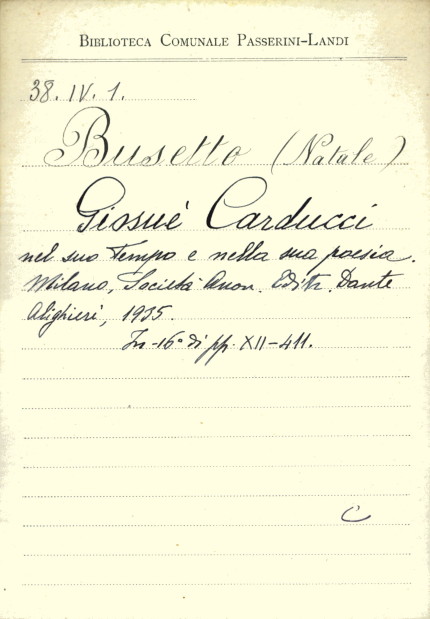 BIBLIOTECA COMUNALE PASSERINI-LANDI
38. IV. 1.
Busetto (Natale)
Giosuè Carducci
nel suo tempo e nella sua poesia.
Milano, Società Anon. Editr. Dante
Alighieri, 1935.
In-16° di pp. XII-411.
C